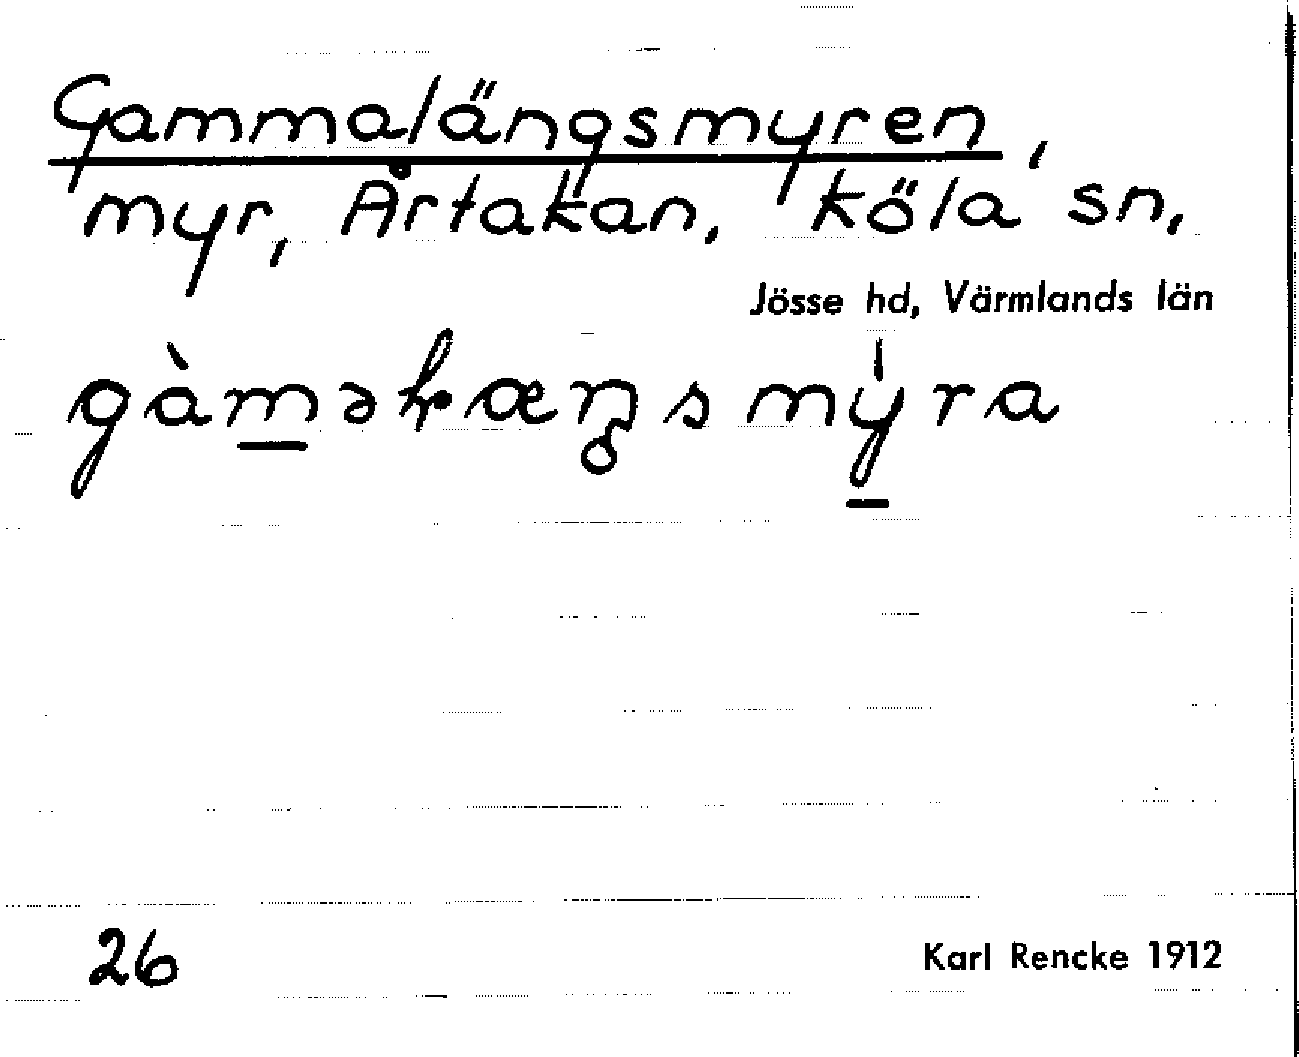 Gammalängsmyren,
myr, Årtakan, Köla sn,
Jösse hd, Värmlands län
gàmaləæŋsmy̍ra
26
Karl Rencke 1912